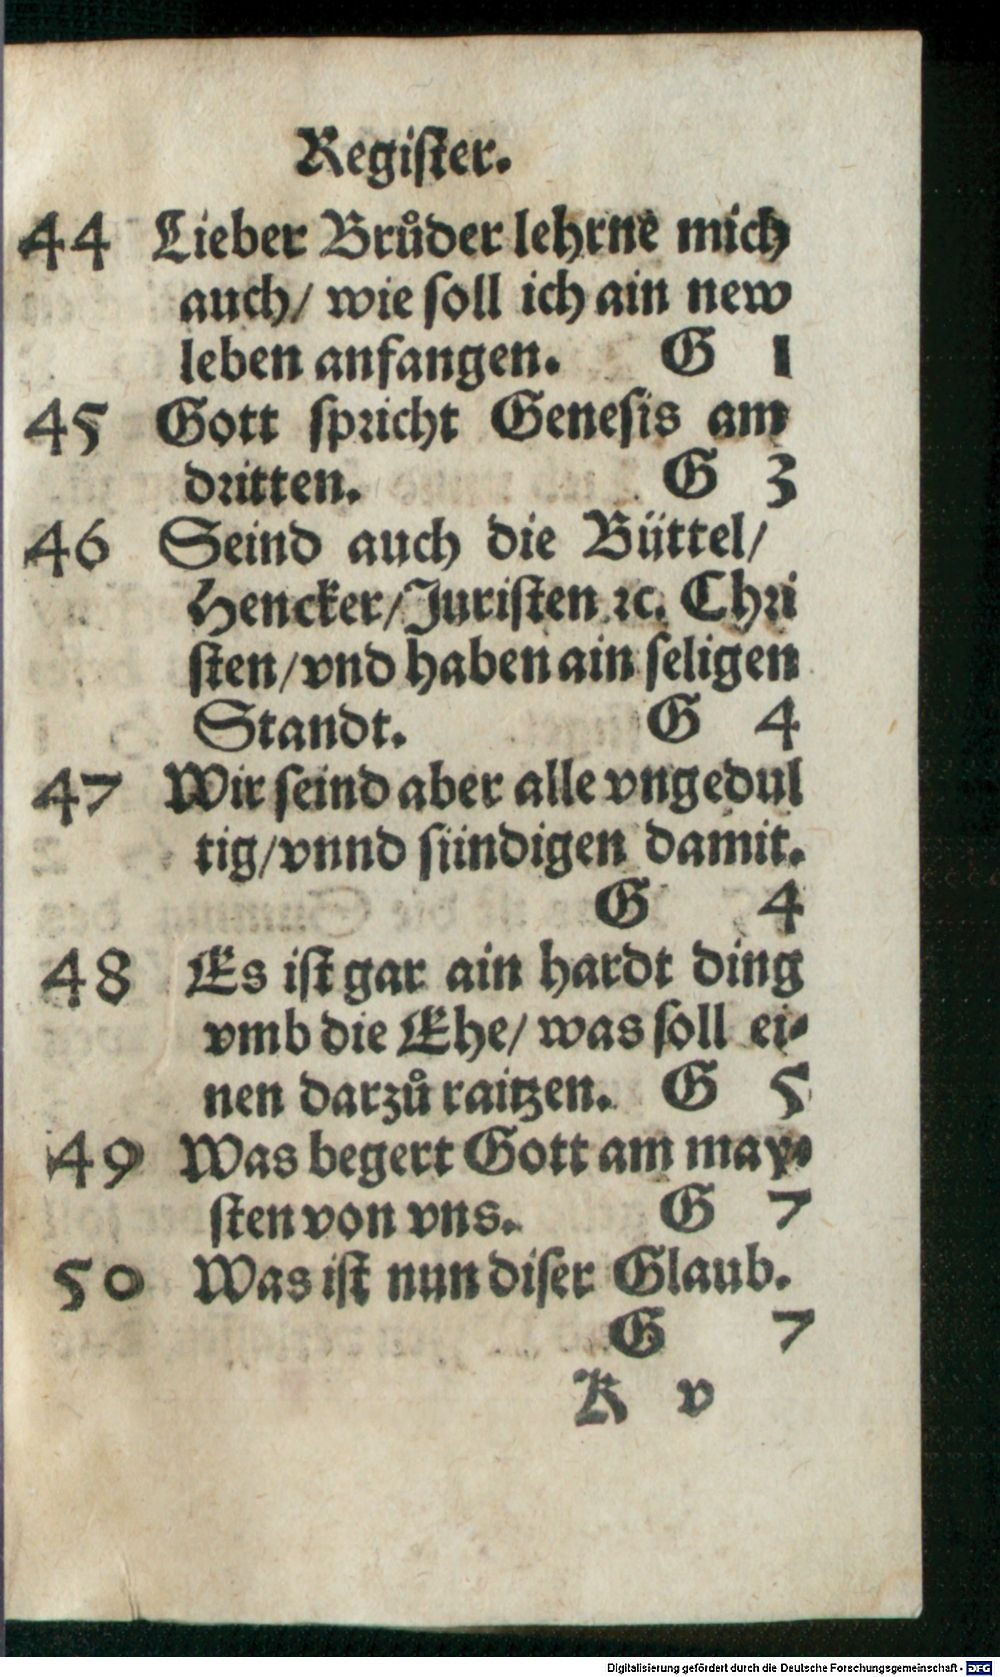 Regiſter.
44 Lieber Bruͦder lehrne mich
auch/ wie ſoll ich ain new
leben anfangen. G 1
45 Gott ſpꝛicht Geneſis am
dꝛitten. G 3
46 Seind auch die Büttel/
Hencker/Juriſten ꝛc. Chꝛi
ſten/vnd haben ain ſeligen
Standt. G 4
47 Wir ſeind aber alle vngedul
tig/vnnd ſündigen damit.
G 4
48 Es iſt gar ain hardt ding
vmb die Ehe/ was ſoll ei-
nen darzuͦ raitzen. G 5
49 Was begert Gott am may-
ſten von vns. G 7
50 Was iſt nun diſer Glaub.
G 7
K v
Digitalisierung gefördert durch die Deutsche Forschungsgemeinschaft - DFG